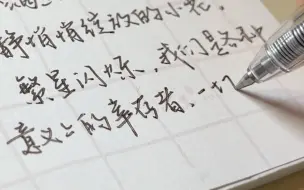 静悄悄绽放的小花.
繁星闪烁,我们是各种
意义上的幸存者.一切